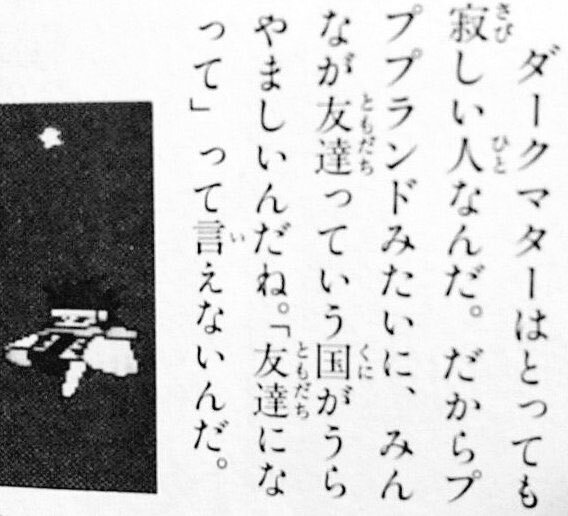 ダークマターはとっても
寂しい人なんだ。だからプ
ププランドみたいに、みん
なが友達っていう国がうら
やましいんだね。「友達にな
って」って言えないんだ。